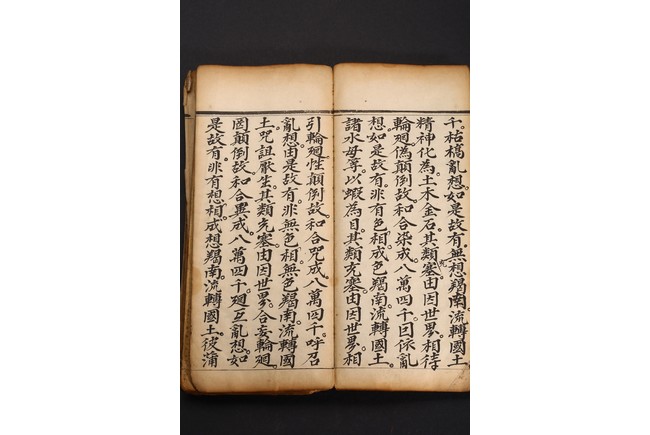 千。枯槁亂想。如是故有。無想羯南。流轉國土
精神化為。土木金石。其類充塞。由因世界。相待
輪廻。偽顛倒故。和合染成。八萬四千。因依亂
想。如是故有。非有色相。成色羯南。流轉國土。
諸水母等。以蝦為目。其類充塞。由因世界。相
引輪廻。性顛倒故。和合咒成。八萬四千。呼召
亂想。由是故有。非無色相。無色羯南。流轉國
土。咒詛厭生。其類充塞。由因世界。合妄輪廻。
罔顛倒故。和合異成。八萬四千。廻互亂想。如
是故有。非有想相。成想羯南。流轉國土。彼蒲